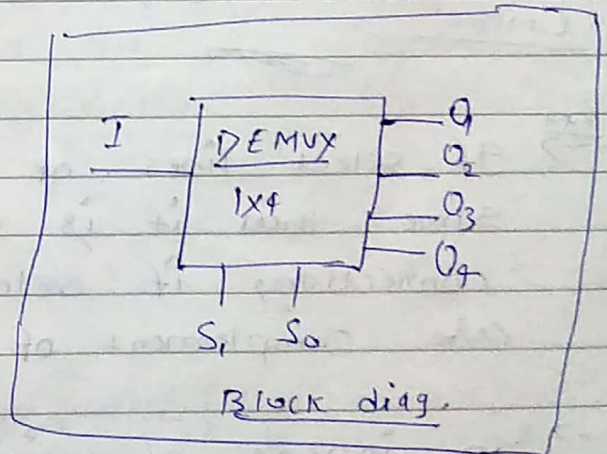 I
DEMUX
1x4
O1
O2
O3
O4
S1 S0
Block diag.